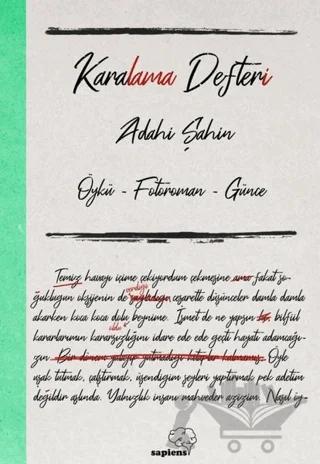 Karalama Defteri
Adahi Şahin
Öykü - Fotoroman - Günce
Temiz havayı içime çekiyordum çekmesine ama fakat so-
ğukluğun oksijenin de verdiği sağladığı cesaretle düşünceler damla damla
akarken koca koca dolu beynime. İsmet de ne yapsın bu, bilfiil
kararlarımın kararsızlığını idare ede ede geçti hayatı adamcağı-
zın. Bir dönem yalayıp yutmadığı kitaplar kalmamış. Öyle
uşak tutmak, çalıştırmak, üşendiğim şeyleri yaptırmak pek adetim
değildir aslında. Yalnızlık insanı mahveder azizim. Nasıl iy-
sapiens